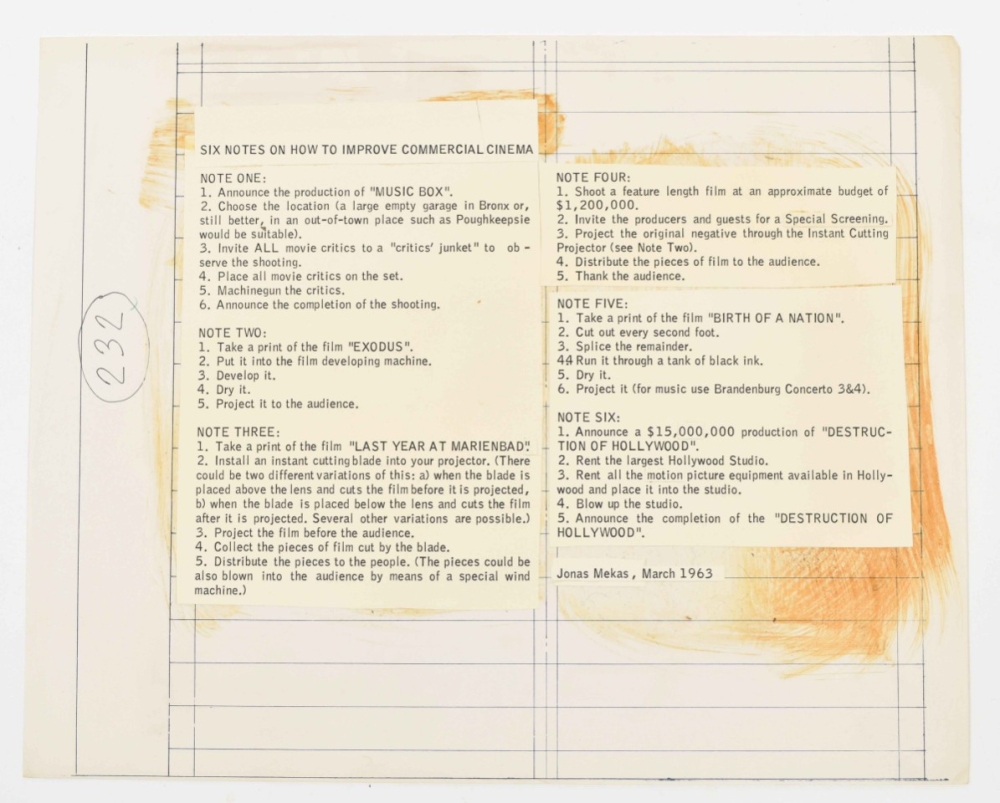 SIX NOTES ON HOW TO IMPROVE COMMERCIAL CINEMA
NOTE ONE:
1. Announce the production of "MUSIC BOX".
2. Choose the location (a large empty garage in Bronx or,
still better, in an out-of-town place such as Poughkeepsie
would be suitable).
3. Invite ALL movie critics to a "critics' junket" to ob -
serve the shooting.
4. Place all movie critics on the set.
5. Machinegun the critics.
6. Announce the completion of the shooting.
NOTE TWO:
1. Take a print of the film "EXODUS".
2. Put it into the film developing machine.
3. Develop it.
4. Dry it.
5. Project it to the audience.
NOTE THREE:
1. Take a print of the film "LAST YEAR AT MARIENBAD".
2. Install an instant cutting blade into your projector. (There
could be two different variations of this: a) when the blade is
placed above the lens and cuts the film before it is projected,
b) when the blade is placed below the lens and cuts the film
after it is projected. Several other variations are possible.)
3. Project the film before the audience.
4. Collect the pieces of film cut by the blade.
5. Distribute the pieces to the people. (The pieces could be
also blown into the audience by means of a special wind
machine.)
NOTE FOUR:
1. Shoot a feature length film at an approximate budget of
$1,200,000.
2. Invite the producers and guests for a Special Screening.
3. Project the original negative through the Instant Cutting
Projector (see Note Two).
4. Distribute the pieces of film to the audience.
5. Thank the audience.
NOTE FIVE:
1. Take a print of the film "BIRTH OF A NATION".
2. Cut out every second foot.
3. Splice the remainder.
44 Run it through a tank of black ink.
5. Dry it.
6. Project it (for music use Brandenburg Concerto 3&4).
NOTE SIX:
1. Announce a $15,000,000 production of "DESTRUC-
TION OF HOLLYWOOD".
2. Rent the largest Hollywood Studio.
3. Rent all the motion picture equipment available in Holly-
wood and place it into the studio.
4. Blow up the studio.
5. Announce the completion of the "DESTRUCTION OF
HOLLYWOOD".
Jonas Mekas, March 1963
232